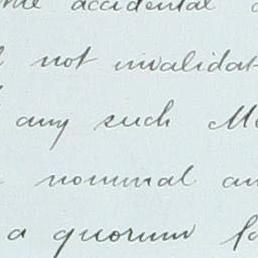 accidental
not invalidat
any such
nominal an
a quorum fo